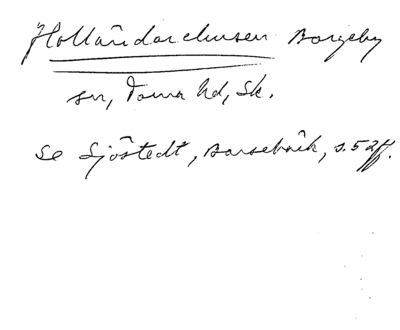 Holländarehusen Borgeby
sn, Torna hd, Sk.
Se Sjöstedt, Barsebäck, s. 52 ff.